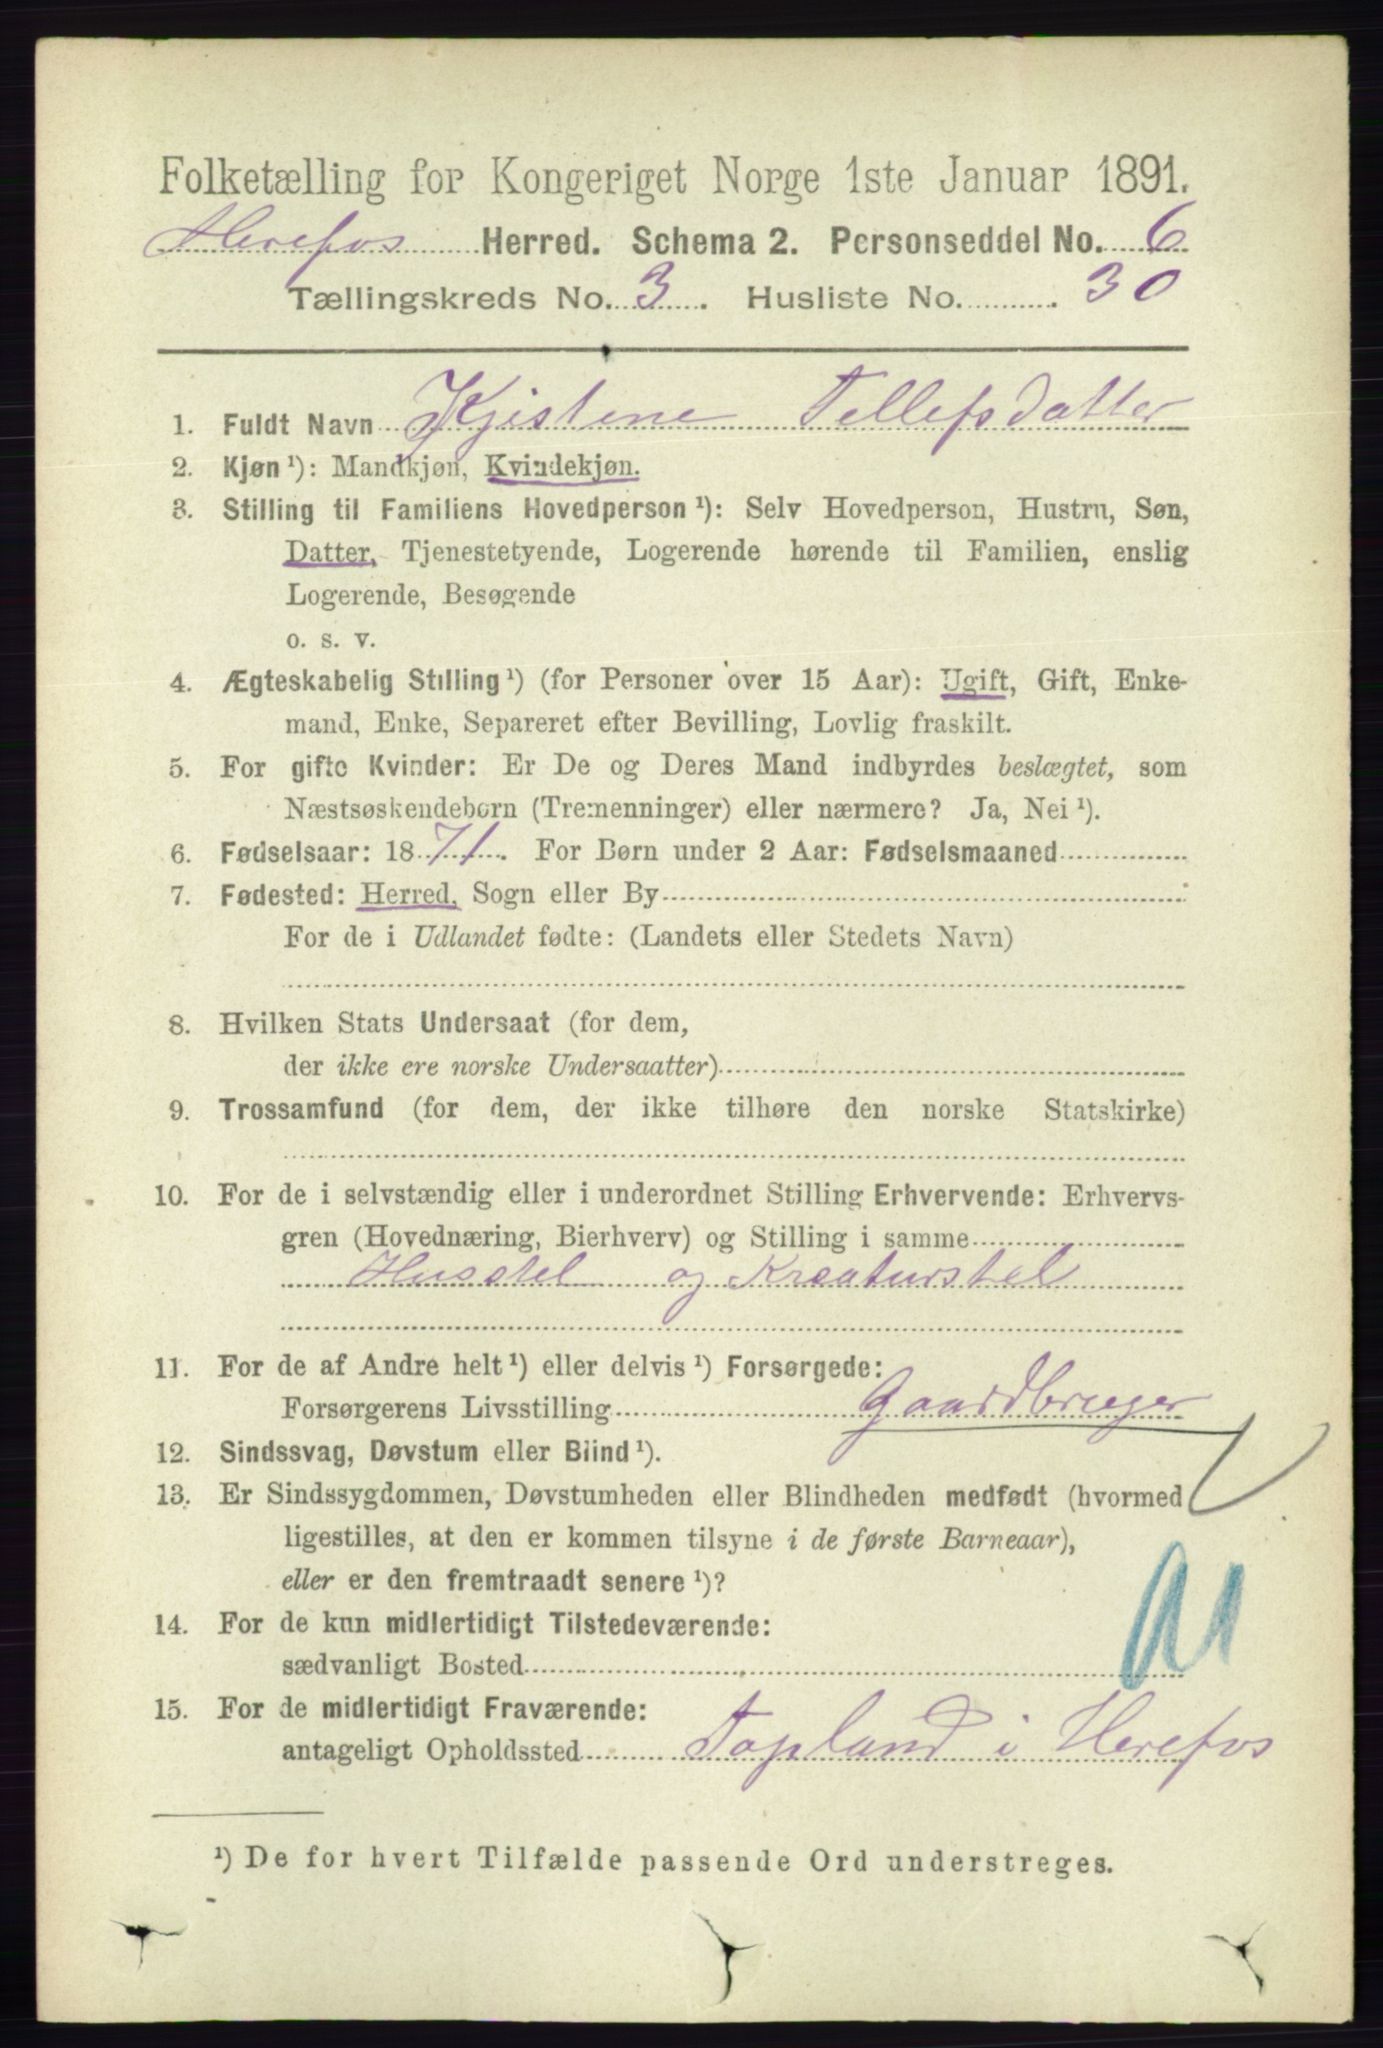 Folketælling for Kongeriget Norge 1ste Januar 1891.
Herefos Herred. Schema 2. Personseddel No. 6
Tællingskreds No. 3. Husliste No. 30
1. Fuldt Navn Kjistene Tellefsdatter
2. Kjøn ¹): Mandkjøn, Kvindekjøn.
3. Stilling til Familiens Hovedperson ¹): Selv Hovedperson, Hustru, Søn,
Datter, Tjenestetyende, Logerende hørende til Familien, enslig
Logerende, Besøgende
o. s. v.
4. Ægteskabelig Stilling ¹) (for Personer over 15 Aar): Ugift, Gift, Enke-
mand, Enke, Separeret efter Bevilling, Lovlig fraskilt.
5. For gifte Kvinder: Er De og Deres Mand indbyrdes beslægtet, som
Næstsøskendeborn (Tremenninger) eller nærmere? Ja, Nei ¹).
6. Fødselsaar: 1871. For Børn under 2 Aar: Fødselsmaaned
7. Fødested: Herred, Sogn eller By
For de i Udlandet fødte: (Landets eller Stedets Navn)
8. Hvilken Stats Undersaat (for dem,
der ikke ere norske Undersaatter)
9. Trossamfund (for dem, der ikke tilhøre den norske Statskirke)
10. For de i selvstændig eller i underordnet Stilling Erhvervende: Erhvervs-
gren (Hovednæring, Bierhverv) og Stilling i samme
Husstel og Kreaturstel
11. For de af Andre helt ¹) eller delvis ¹) Forsørgede:
Forsørgerens Livsstilling Gaardbruger
12. Sindssvag, Døvstum eller Blind ¹).
13. Er Sindssygdommen, Døvstumheden eller Blindheden medfødt (hvormed
ligestilles, at den er kommen tilsyne i de første Barneaar),
eller er den fremtraadt senere ¹)?
14. For de kun midlertidigt Tilstedeværende:
sædvanligt Bosted
15. For de midlertidigt Fraværende:
antageligt Opholdssted Topland i Herefos
¹) De for hvert Tilfælde passende Ord understreges.